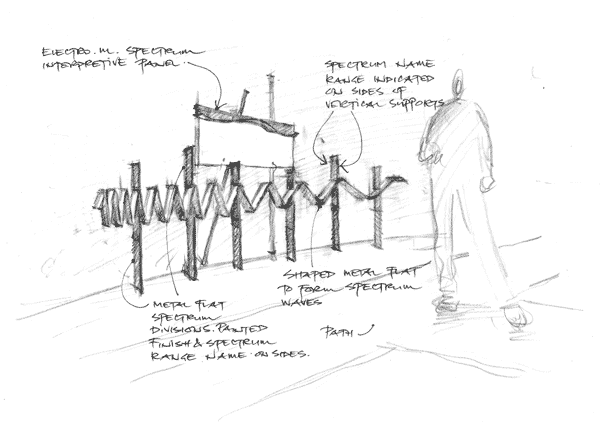 ELECTRO. M. SPECTRUM
INTERPRETIVE PANEL.
SPECTRUM NAME
RANGE INDICATED
ON SIDES OF
VERTICAL SUPPORTS
SHAPED METAL FLAT
TO FORM SPECTRUM
WAVES
METAL FLAT
SPECTRUM
DIVISIONS. PAINTED
FINISH & SPECTRUM
RANGE NAME ON SIDES.
PATH